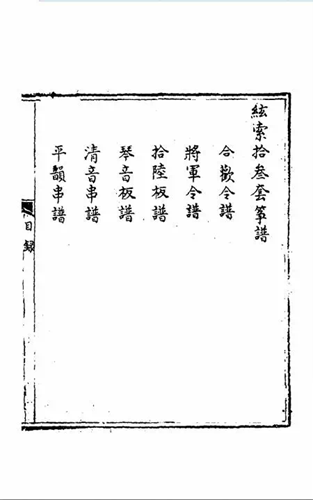 絃索拾叁套箏譜
合歡令譜
將軍令譜
拾陸板譜
琴音板譜
清音串譜
平韻串譜
目錄